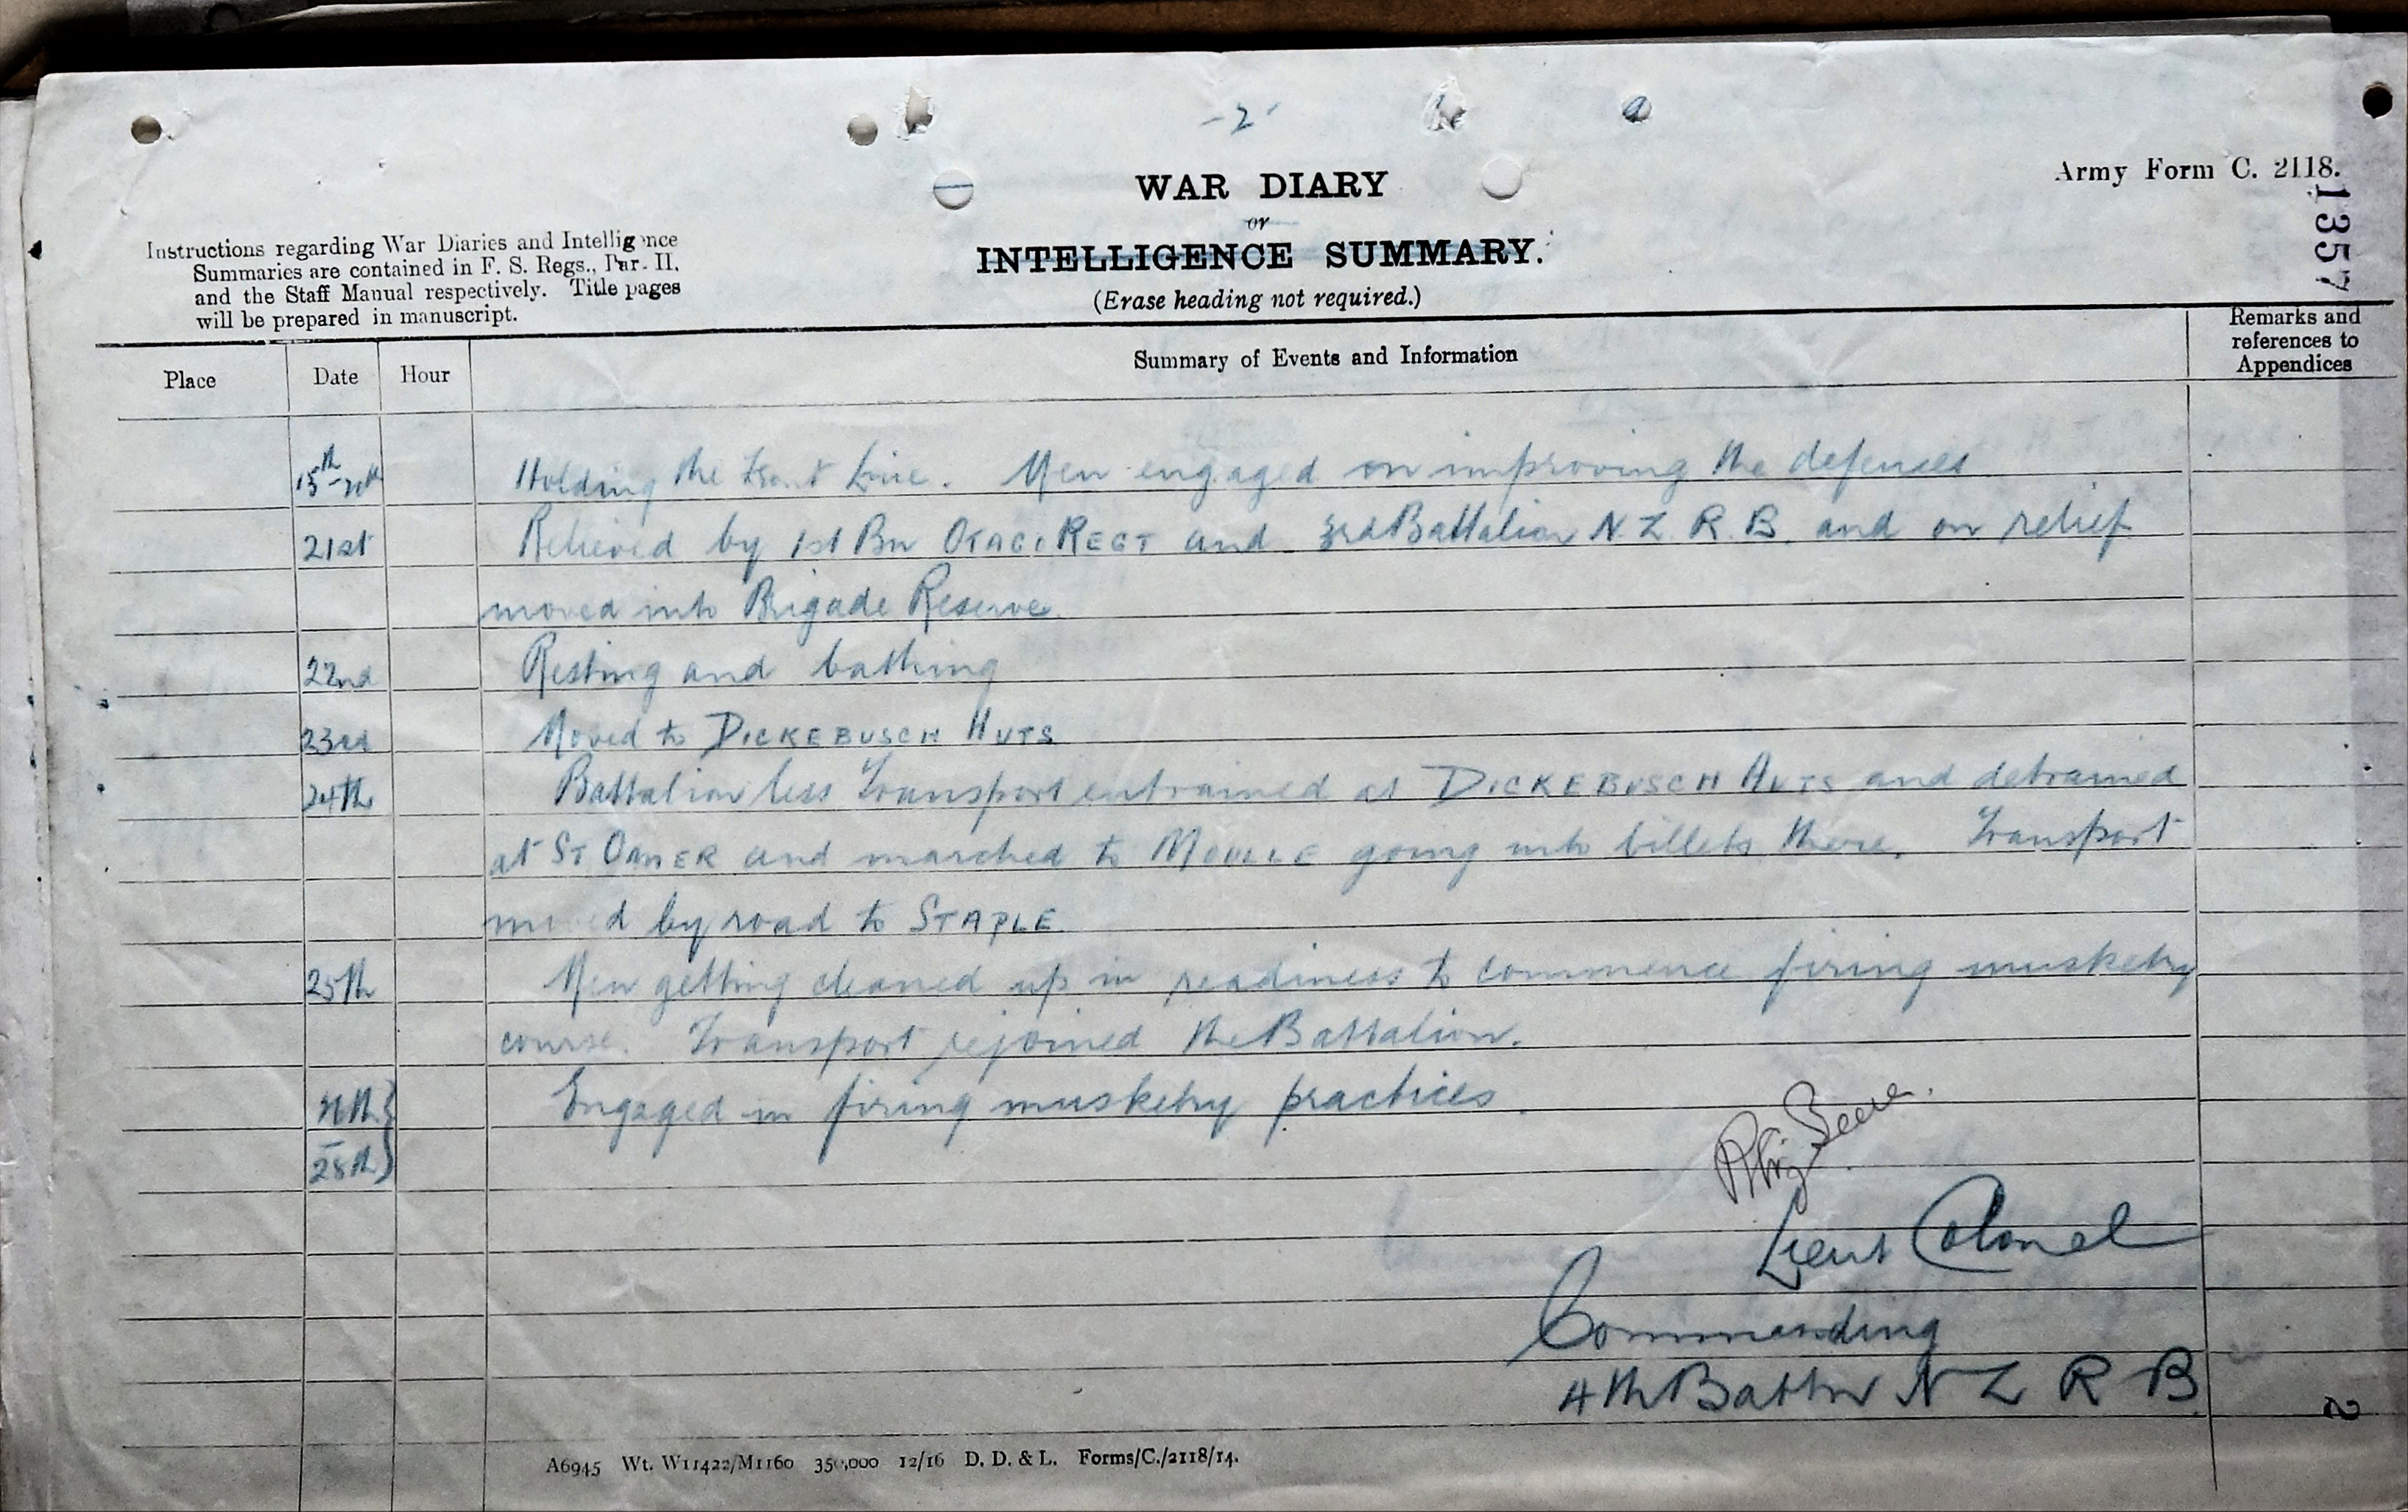 -2-
WAR DIARY
Army Form C. 2118.
or
1357
INTELLIGENCE SUMMARY.
(Erase heading not required.)
Instructions regarding War Diaries and Intelligence
Summaries are contained in F. S. Regs., Part II.
and the Staff Manual respectively. Title pages
will be prepared in manuscript.
Place Date Hour Summary of Events and Information Remarks and
references to
Appendices
15th - 20th Holding the Front Line. Men engaged on improving the defences
21st Relieved by 1st Bn OTAGO REGT and 3rd Battalion N. Z. R. B. and on relief
moved into Brigade Reserve.
22nd Resting and bathing
23rd Moved to DICKEBUSCH HUTS
24th Battalion less Transport entrained at DICKEBUSCH HUTS and detrained
at ST. OMER and marched to MOULLE going into billets there. Transport
moved by road to STAPLE.
25th Men getting cleaned up in readiness to commence firing musketry
course. Transport rejoined the Battalion.
Engaged in firing musketry practices.
28th
Lieut Colonel
Commanding
4th Battn N Z R B
2
A6945 Wt. W11422/M1160 350,000 12/16 D. D. & L. Forms/C./2118/14.